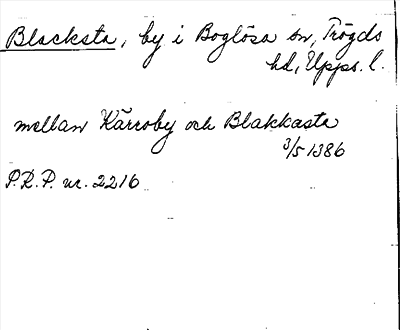 Blacksta, by i Boglösa sn, Trögds
hd, Upps. l.
mellan Kärroby och Blakkasta
3/5 1386
P.R.P. nr. 2216